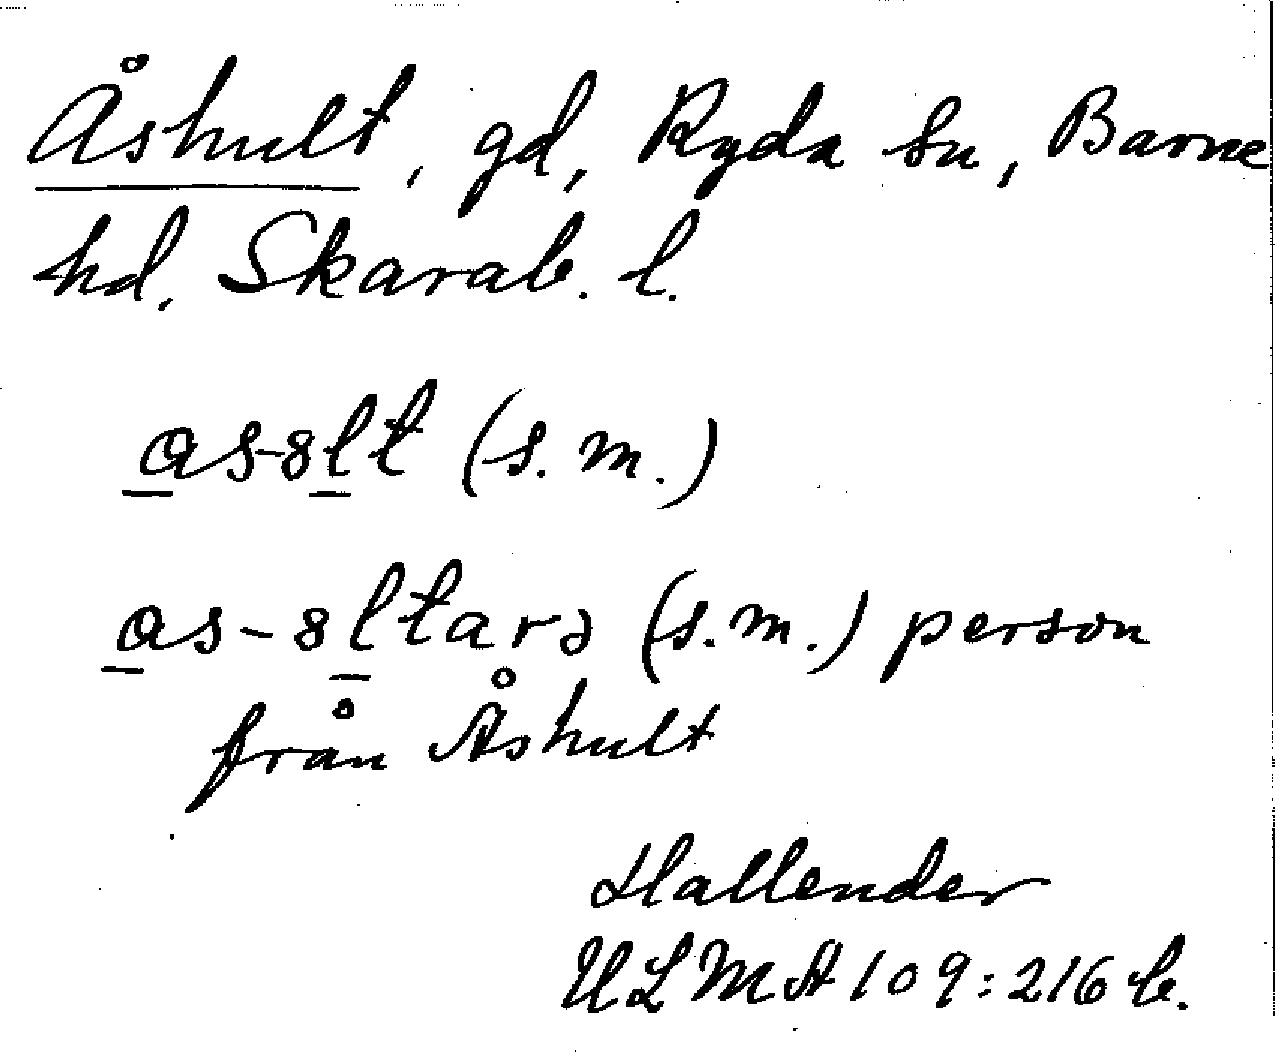 Åshult, gd, Ryda sn, Barne
hd. Skarab. l.
as-8lt (s.m.)
as-8ltarə (s.m.) person
från Åshult
Hallender
ULMA 109:216 b.